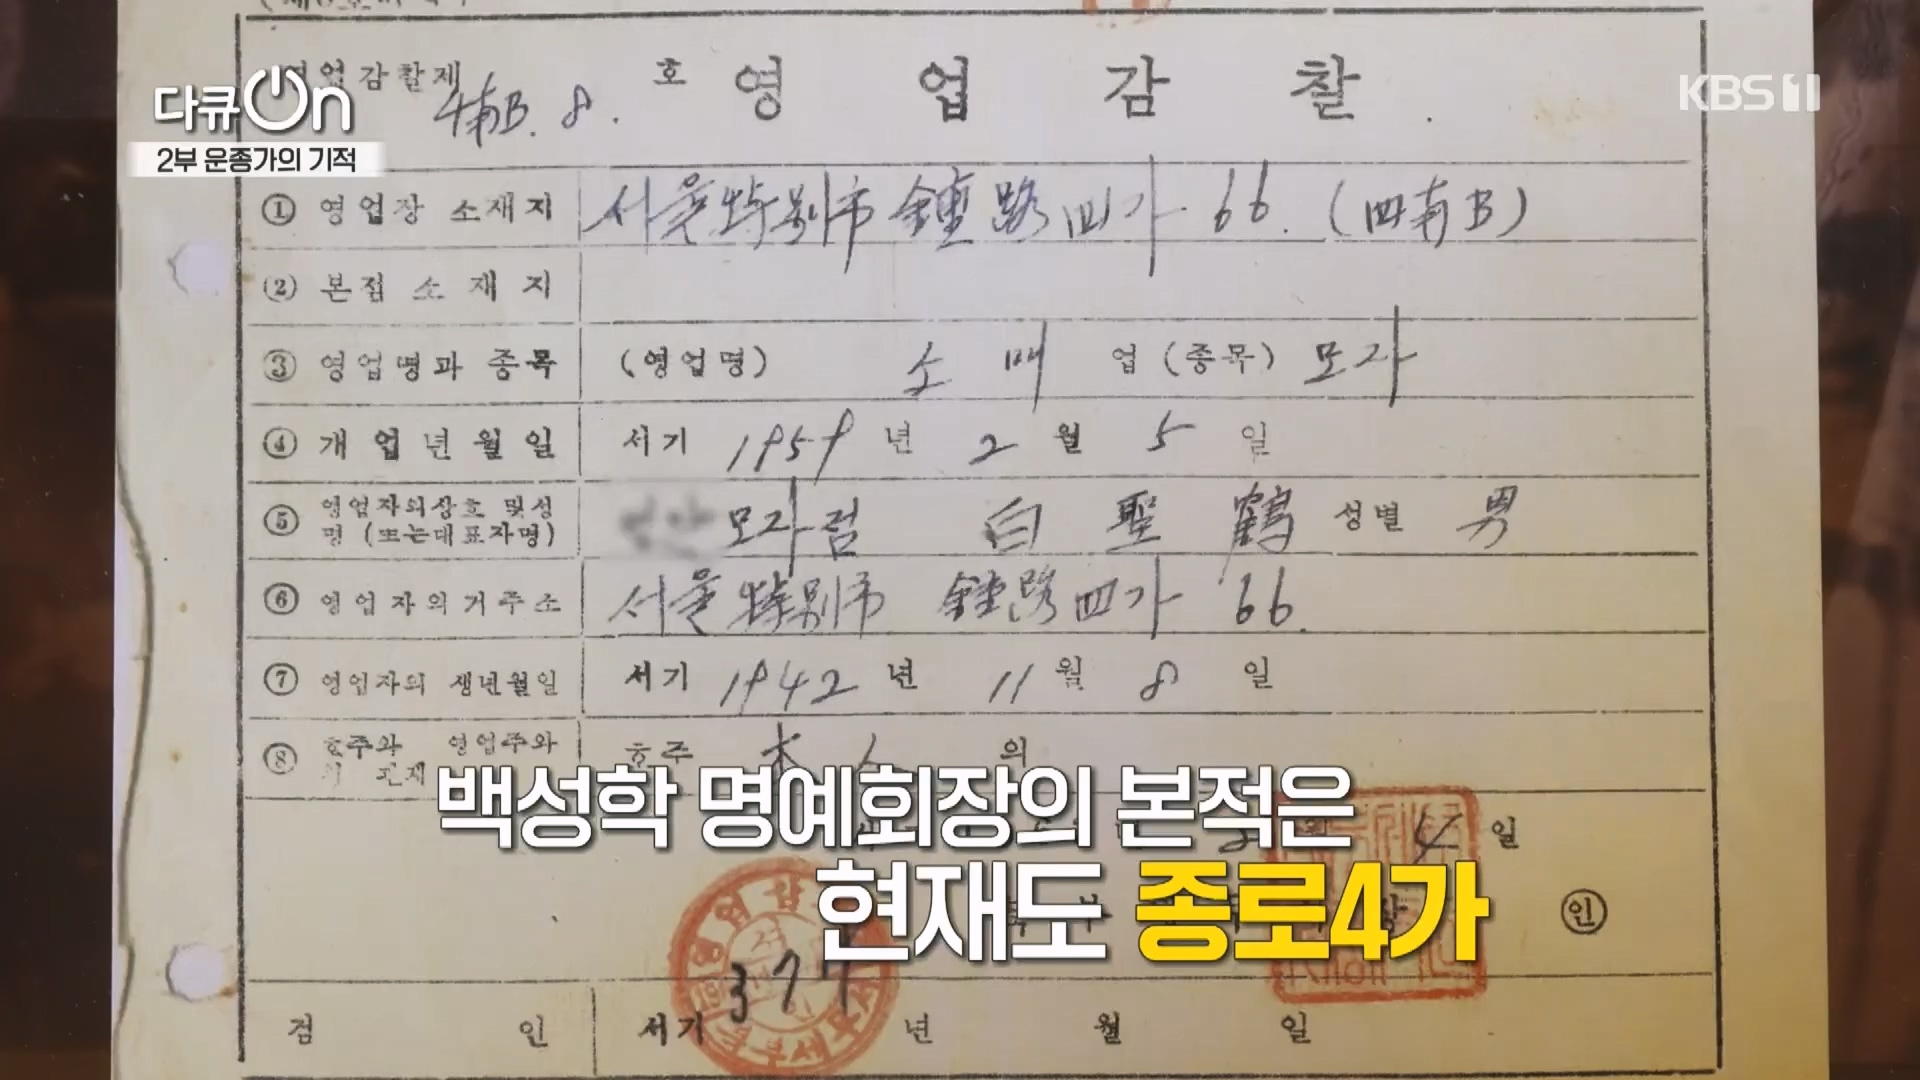 다큐On
2부 운종가의 기적
KBS 1
영업감찰제 4南B. 8. 호 영업감찰
① 영업장 소재지 서울特別市 鍾路 四가 66. (四南B)
② 본점 소재지
③ 영업명과 종목 (영업명) 소매 업 (종목) 모자
④ 개업년월일 서기 1959 년 2 월 5 일
⑤ 영업자의상호 및성 모자점 白聖鶴 성별 男
명 (또는대표자명)
⑥ 영업자의거주소 서울特別市 鍾路 四가 66.
⑦ 영업자의 생년월일 서기 1942 년 11 월 8 일
⑧ 호주와 영업주와 호주 本人 의
백성학 명예회장의 본적은
4 일
현재도 종로4가
인
377
검 인 서기 년 월 일